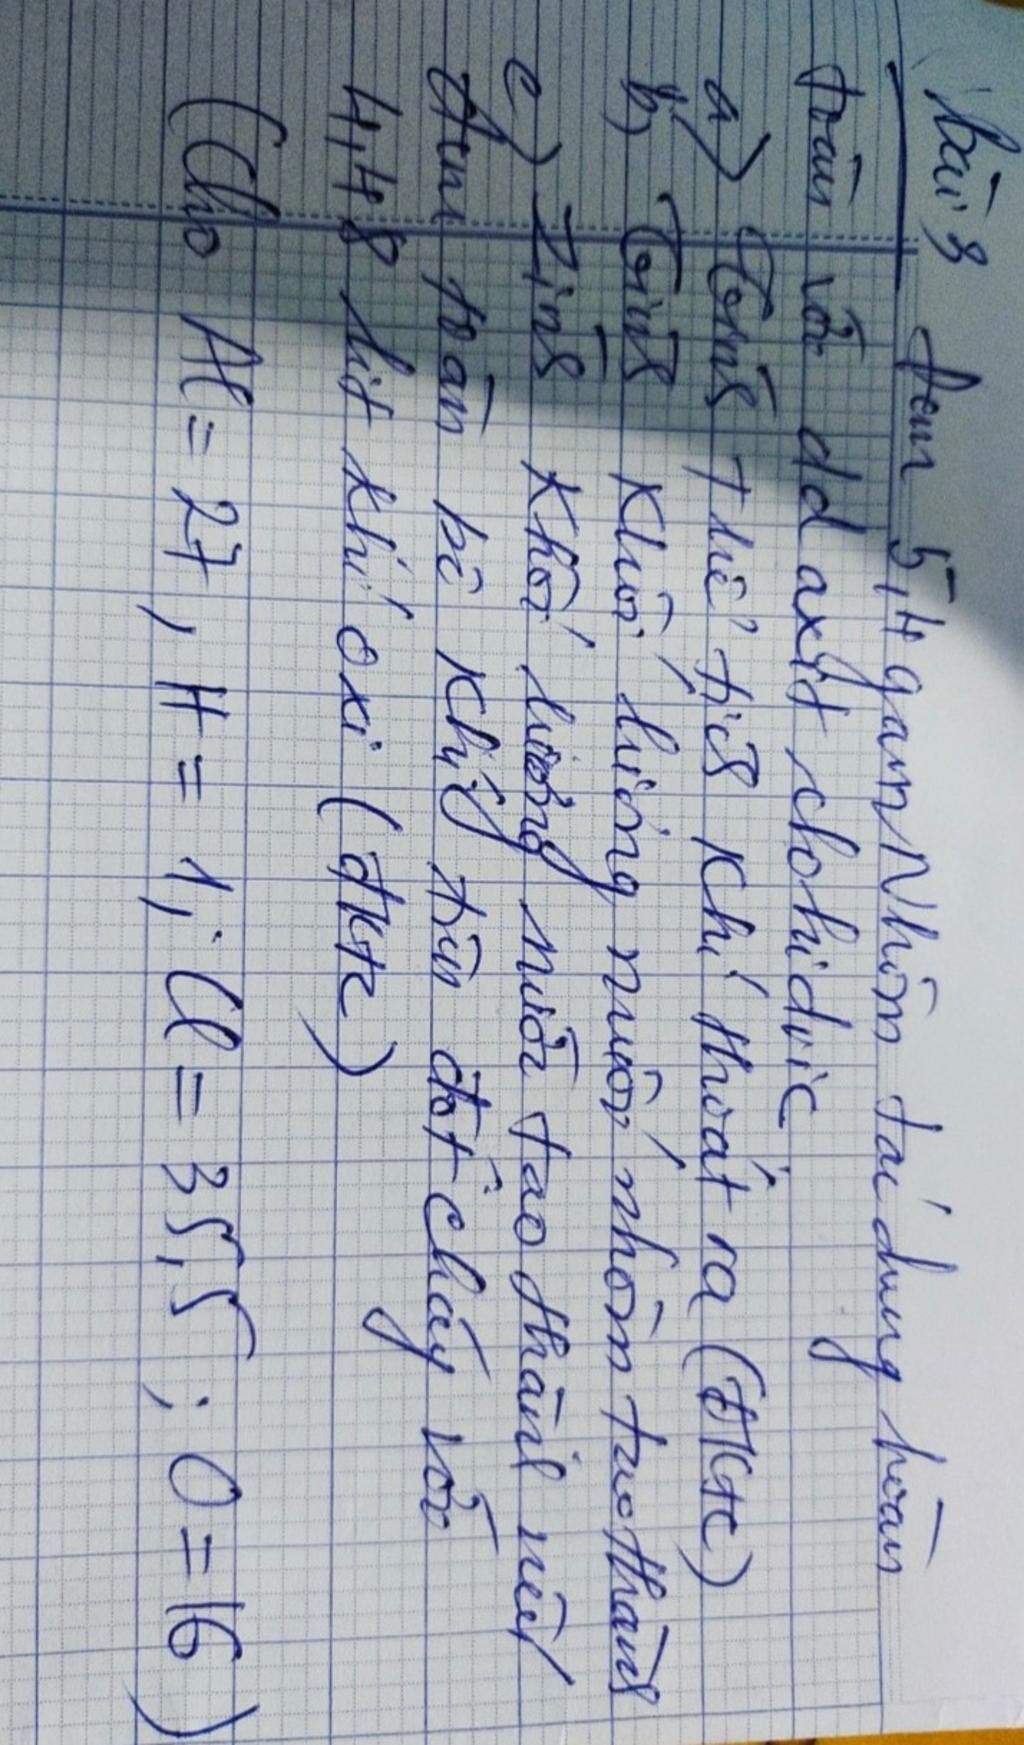 bài 3 Đem 5,4 gam Nhôm tác dụng hoàn
toàn với dd axit clohidric
a) Tính thể tích khí thoát ra (Đktc)
b) Tính khối lượng muối nhôm tạo thành
c) Tính khối lượng nước tạo thành nếu
đem toàn bộ khí trên đốt cháy với
4,48 lít khí oxi (đktc)
(Cho Al = 27, H = 1, Cl = 35,5 ; O = 16)